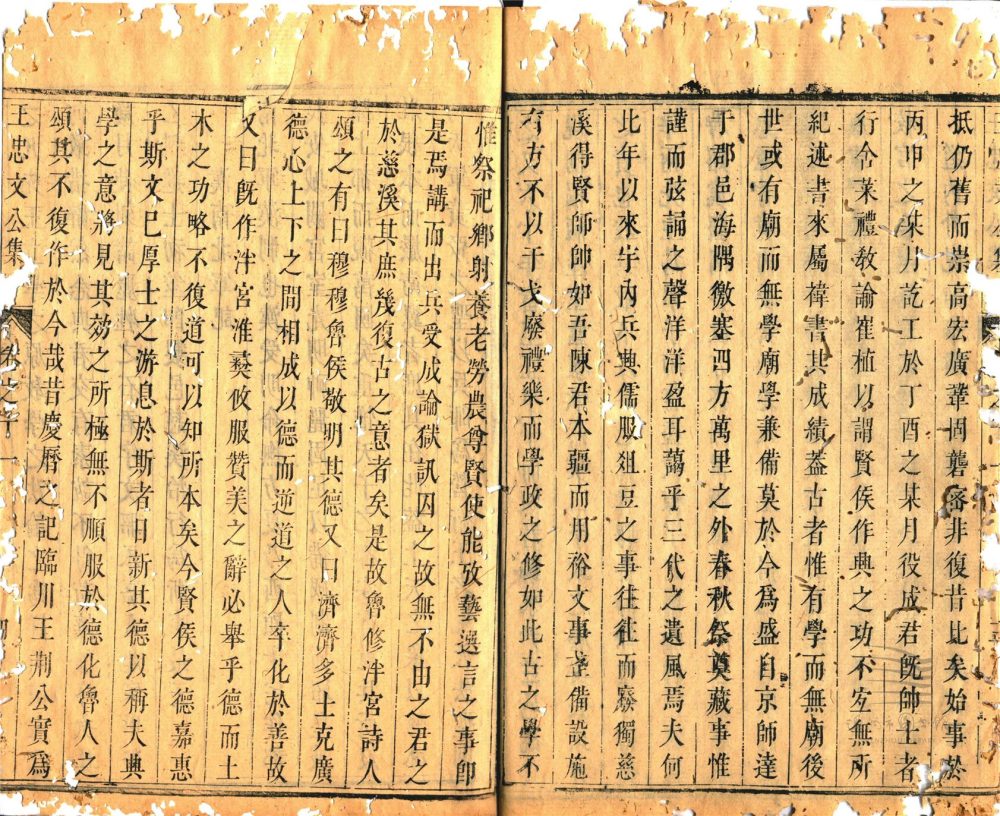 抵仍舊而崇高宏廣鞏固礱密非復昔比矣始事於
丙申之某月訖工於丁酉之某月役成君旣帥士者
行舍菜禮教諭崔植以謂賢侯作興之功不宜無所
紀述書來屬禕書其成績葢古者惟有學而無廟後
世或有廟而無學廟學兼備莫於今爲盛自京師達
于郡邑海隅徼塞四方萬里之外春秋祭奠藏事惟
謹而弦誦之聲洋洋盈耳藹乎三代之遺風焉夫何
比年以來宇內兵興儒服俎豆之事往往而廢獨慈
溪得賢師帥如吾陳君本疆而用裕文事葢備設施
有方不以干戈廢禮樂而學政之修如此古之學不
惟祭祀鄉射養老勞農尊賢使能攷藝選言之事卽
是焉講而出兵受成論獄訊囚之故無不由之君之
於慈溪其庶幾復古之意者矣是故魯修泮宮詩人
頌之有曰穆穆魯侯敬明其德又曰濟濟多士克廣
德心上下之間相成以德而逆道之人卒化於善故
又曰旣作泮宮淮夷攸服贊美之辭必舉乎德而土
木之功略不復道可以知所本矣今賢侯之德嘉惠
乎斯文已厚士之游息於斯者日新其德以稱夫典
學之意將見其効之所極無不順服於德化魯人之
頌其不復作於今哉昔慶曆之記臨川王荆公實爲
王忠文公集
卷之